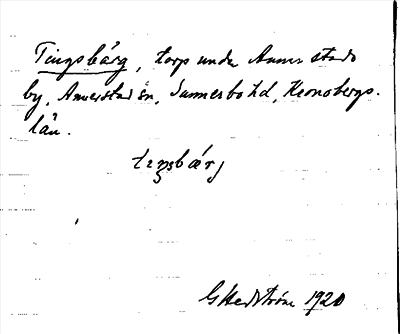 Tingsbärg, torp under Annerstads
by, Annerstad sn, Sunnerbo hd, Kronobergs
län.
tɪŋsbærj
GHedström 1920